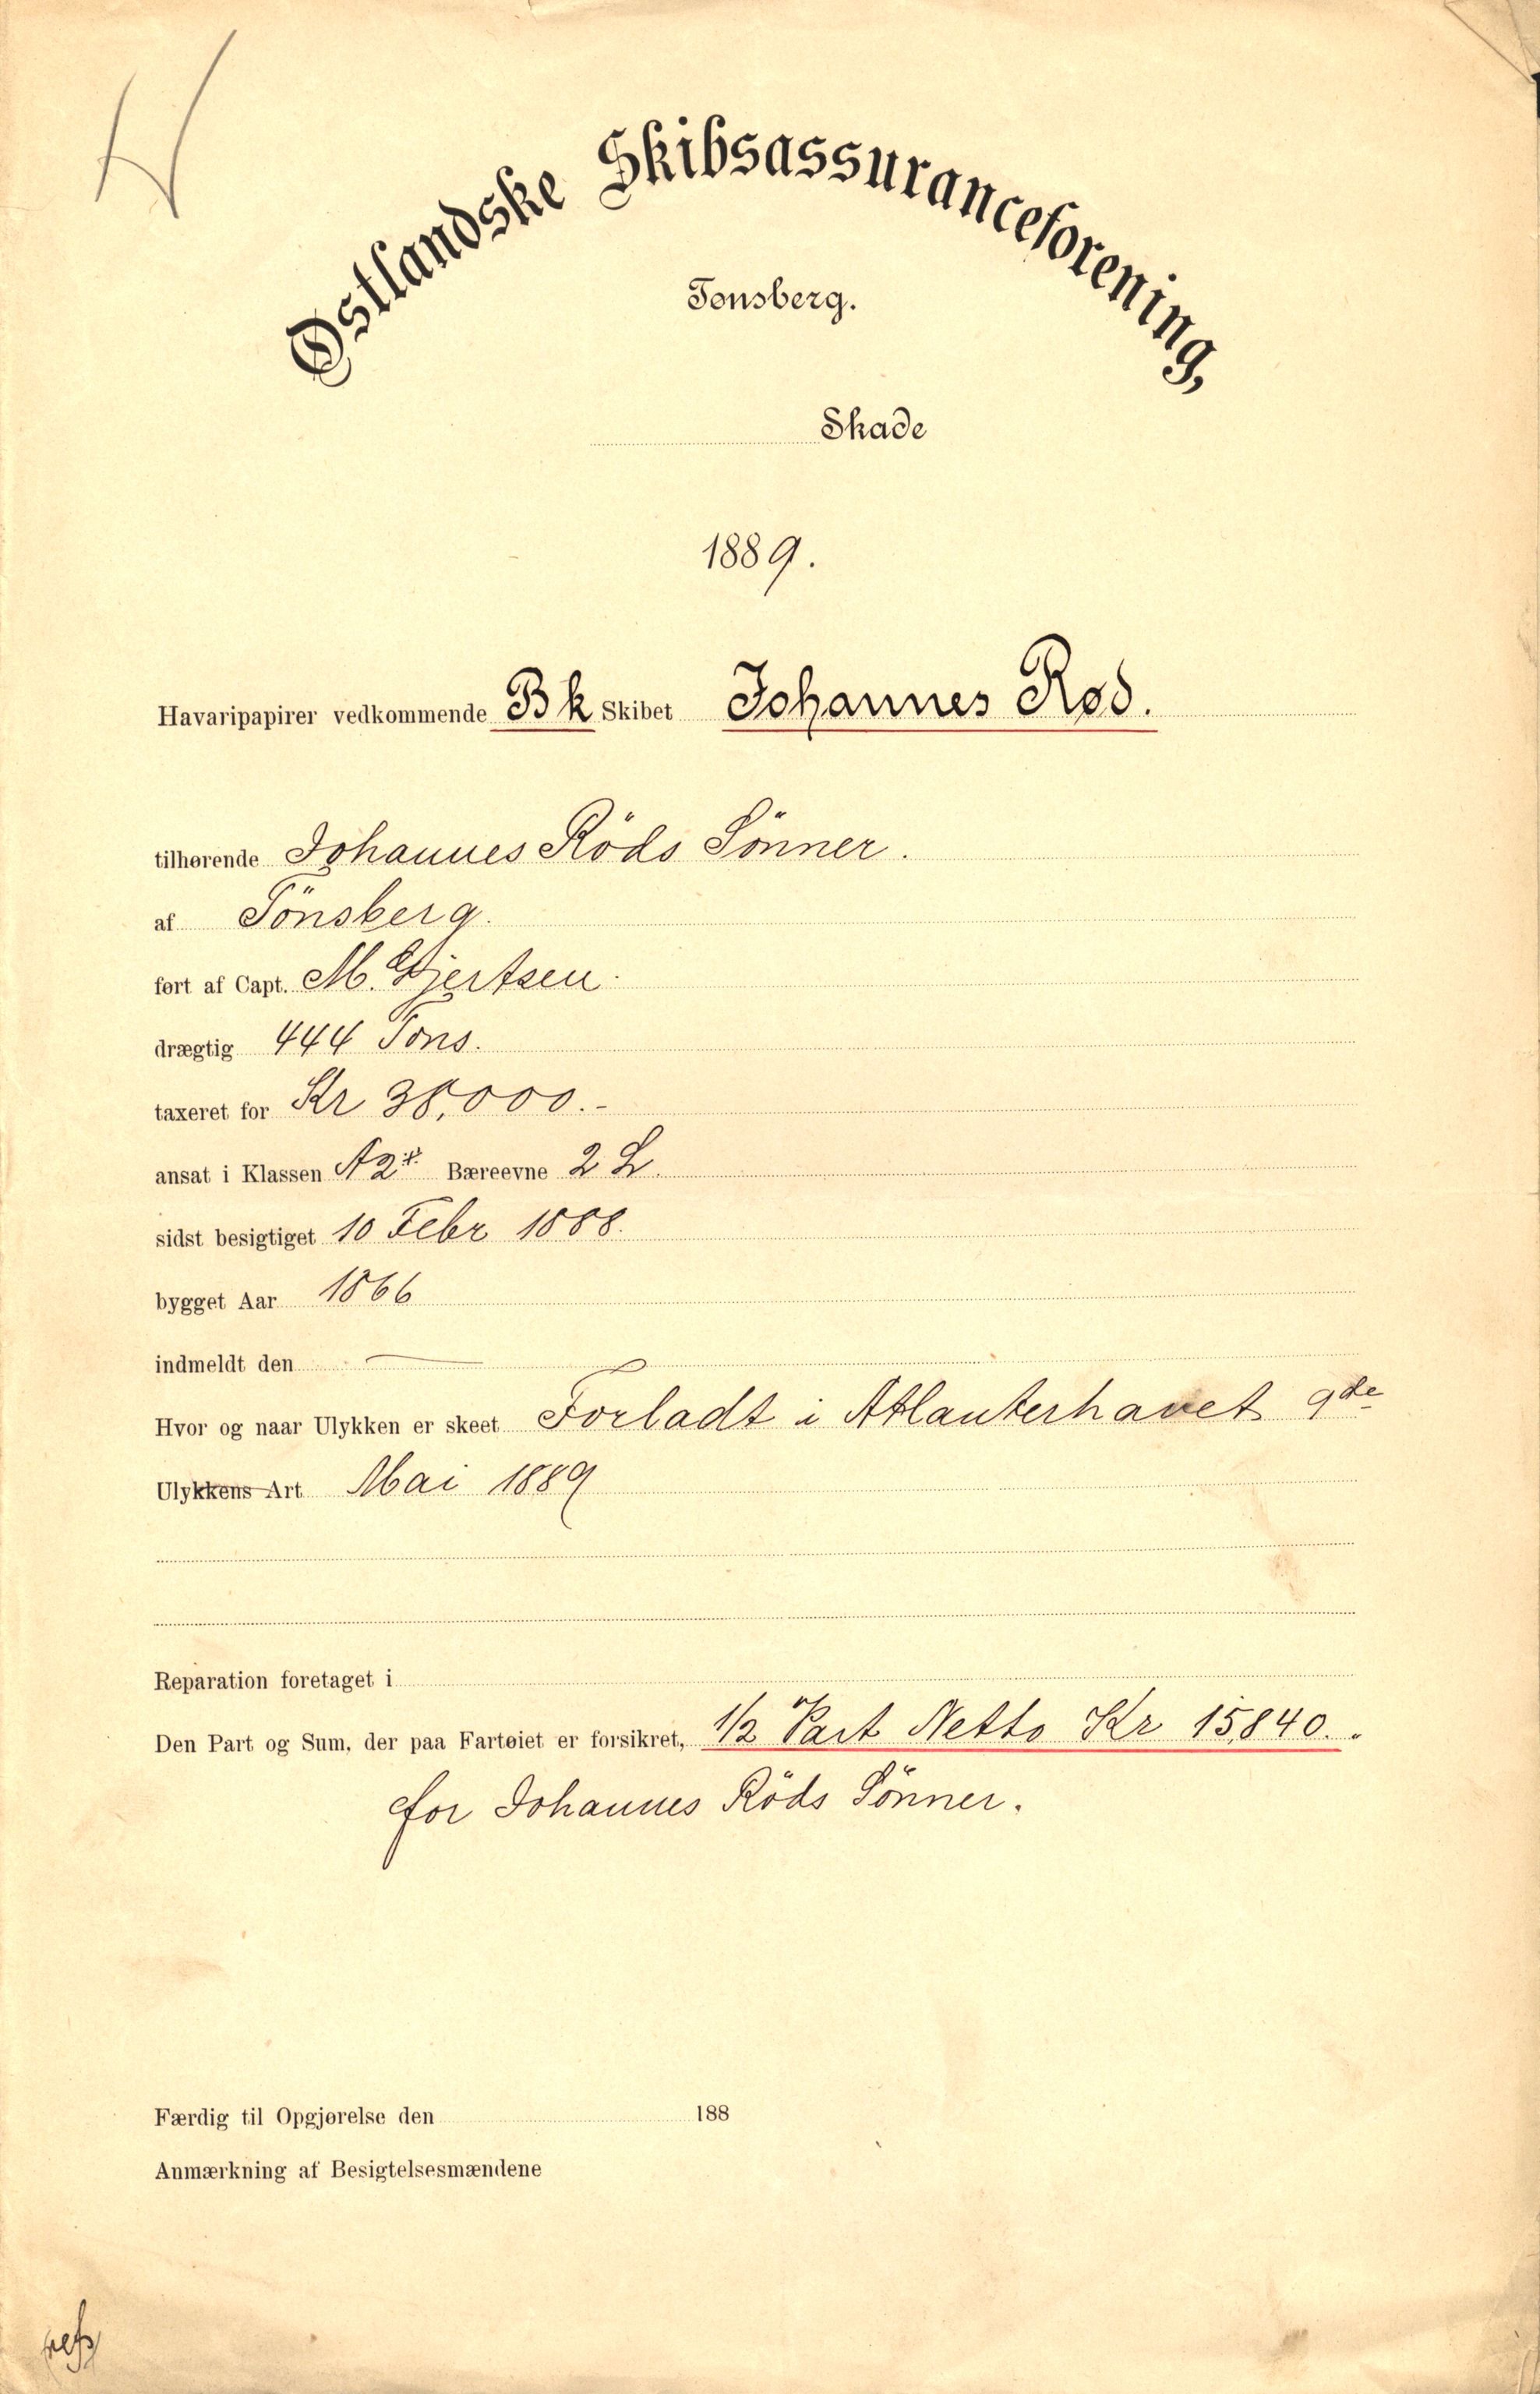 Østlandske Skibsassuranceforening,
Tønsberg.
Skade
1889.
Havaripapirer vedkommende Bk Skibet Johannes Rød.
tilhørende Johannes Röds Sönner.
af Tönsberg.
ført af Capt. M. Gjertsen.
drægtig 444 Tons.
taxeret for Kr 38,000.-
ansat i Klassen A2 Bæreevne 2 L.
sidst besigtiget 10 Febr 1888.
bygget Aar 1866
indmeldt den —
Hvor og naar Ulykken er skeet Forladt i Atlanterhavet 9de
Ulykkens Art Mai 1889
Reparation foretaget i
Den Part og Sum, der paa Fartøiet er forsikret, 1/2 Part Netto Kr 15,840..
for Johannes Röds Sönner.
Færdig til Opgjørelse den 188
Anmærkning af Besigtelsesmændene